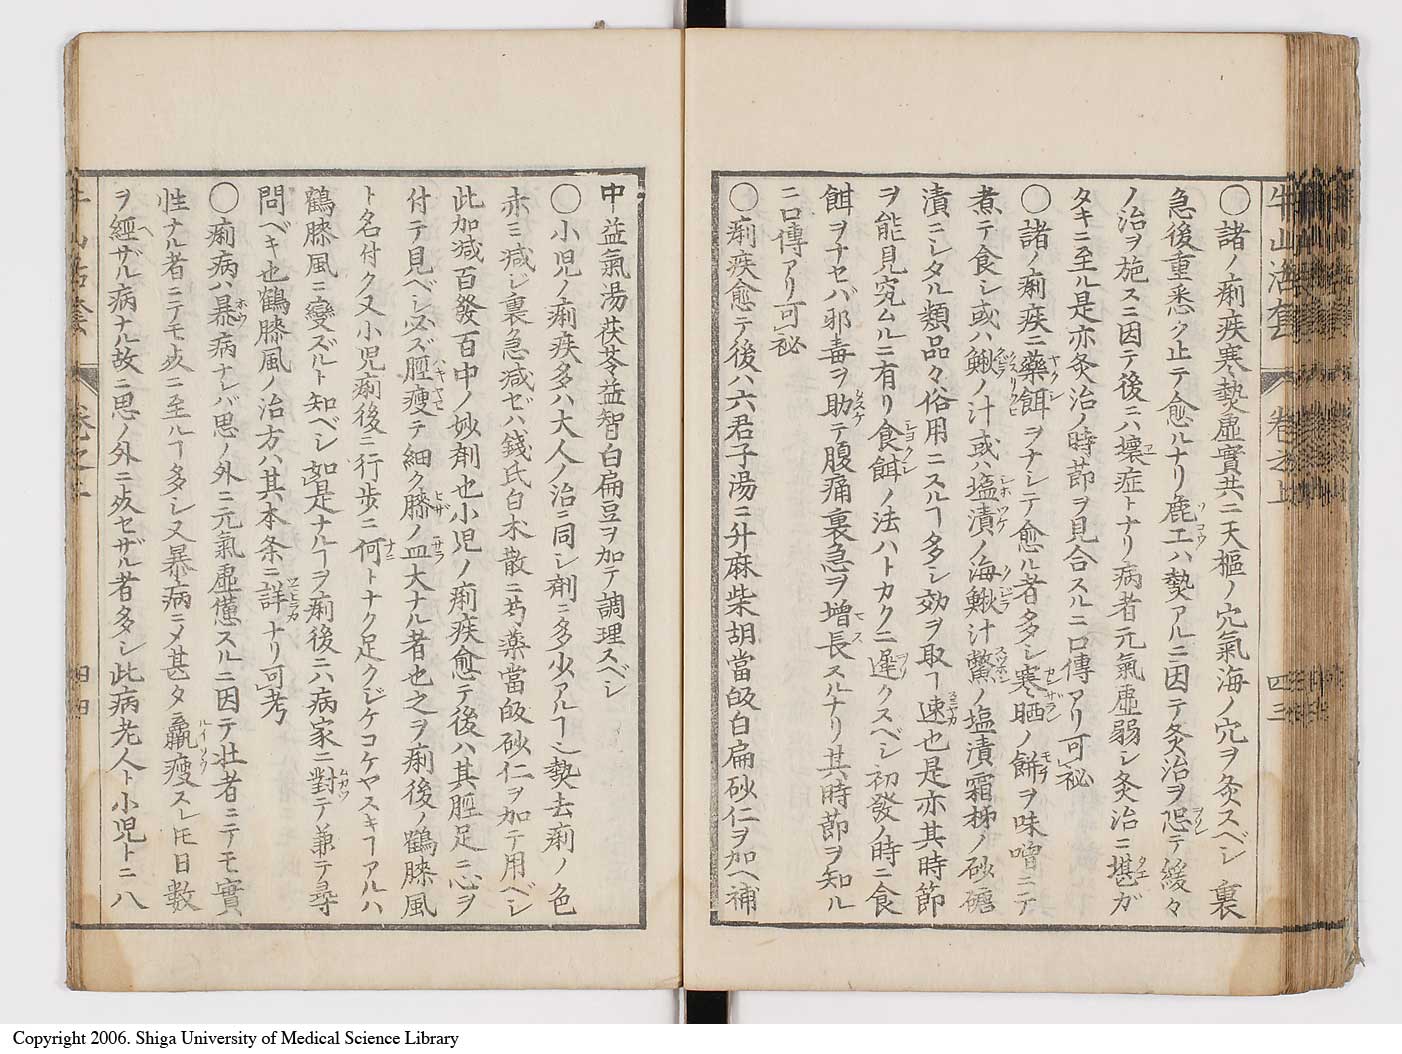 牛山活套 卷之上 四三
〇諸ノ痢疾寒熱虛實共ニ天樞ノ穴氣海ノ穴ヲ灸スベシ裏
急後重悉ク止テ愈ルナリ麁工ハ熱アルニ因テ灸治ヲ恐テ緩々
ノ治ヲ施スニ因テ後ニハ壞症トナリ病者元氣虛弱シ灸治ニ堪ガ
タキニ至ル是亦灸治ノ時節ヲ見合スルニ口傳アリ可祕
〇諸ノ痢疾ニ藥餌ヲナシテ愈ル者多シ寒晒ノ餅ヲ味噌ニテ
煮テ食シ或ハ鰍ノ汁或ハ塩漬ノ海鰍汁鱉ノ塩漬霜柹ノ砂糖
漬ニシタル類品々俗用ニスルヿ多シ効ヲ取ヿ速也是亦其時節
ヲ能見究ムルニ有リ食餌ノ法ハトカクニ遲クスベシ初發ノ時ニ食
餌ヲナセバ邪毒ヲ助テ腹痛裏急ヲ增長スルナリ其時節ヲ知ル
ニ口傳アリ可祕
〇痢疾愈テ後ハ六君子湯ニ升麻柴胡當皈白扁砂仁ヲ加ヘ補
中益氣湯茯苓益智白扁豆ヲ加テ調理スベシ
〇小児ノ痢疾多ハ大人ノ治ニ同シ剤ニ多少アルヿ乄熱去痢ノ色
亦ミ減シ裏ク急減ゼバ錢氏白朮散ニ芍藥當皈砂仁ヲ加テ用ベシ
此加減百發百中ノ妙剤也小児ノ痢疾愈テ後ハ其脛足ニ心ヲ
付テ見ベシ必ズ脛瘦テ細ク膝ノ皿大ナル者也之ヲ痢後ノ鶴膝風
ト名付ク又小児痢後ニ行歩ニ何トナク足クジケコケヤスキヿアルハ
鶴膝風ニ變ズルト知ベシ如是ナルヿヲ痢後ニハ病家ニ對テ兼テ尋
問ベキ也鶴膝風ノ治方ハ其本条ニ詳ナリ可考
〇痢病ハ暴病ナレバ思ノ外ニ元氣虛憊スルニ因テ壮者ニテモ實
性ナル者ニテモ死ニ至ルヿ多シ又暴病ニ乄甚タ羸瘦スレ𪜈日數
ヲ經ザル病ナル故ニ思ノ外ニ死セザル者多シ此病老人ト小児トニハ
四四
Copyright 2006. Shiga University of Medical Science Library